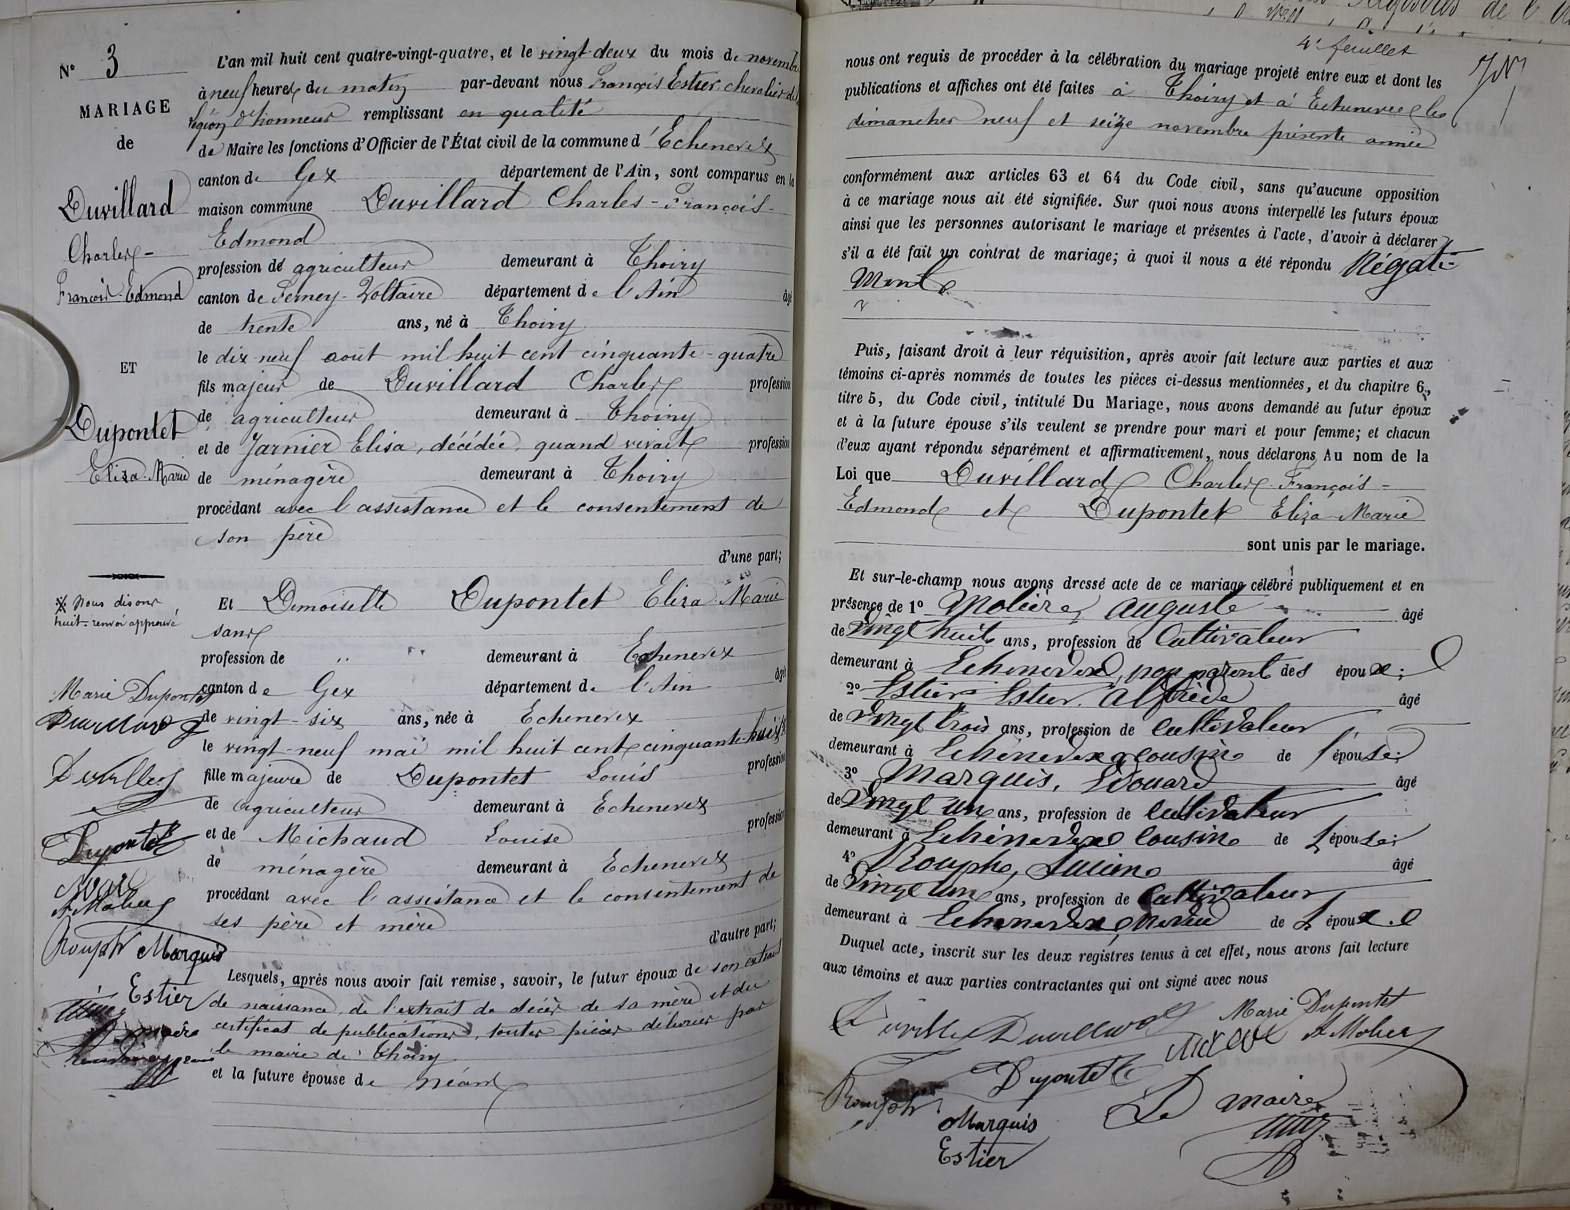 N° 3
MARIAGE
de
Duvillard
Charles-
François-Edmond
ET
Dupontet
Eliza-Marie
※ Nous disons
huit - renvoi approuvé
Marie Dupontet
Duvillard
Dupontet
A Molier
Rouph Marquis
Estier
L'an mil huit cent quatre-vingt-quatre, et le vingt deux du mois de novembre
à neuf heures du matin par-devant nous François Estier chevalier de la
légion d'honneur remplissant en qualité
de Maire les fonctions d'Officier de l'État civil de la commune d'Echenevex
canton de Gex département de l'Ain, sont comparus en la
maison commune Duvillard Charles-François-
Edmond
profession de agriculteur demeurant à Thoiry
canton de Ferney-Voltaire département de l'Ain âgé
de trente ans, né à Thoiry
le dix-neuf août mil huit cent cinquante-quatre
fils majeur de Duvillard Charles profession
de agriculteur demeurant à Thoiry
et de Jarnier Elisa, décédée, quand vivait profession
de ménagère demeurant à Thoiry
procédant avec l'assistance et le consentement de
son père
d'une part;
Et Demoiselle Dupontet Eliza Marie
sans
profession de " " demeurant à Echenevex
canton de Gex département de l'Ain âgée
de vingt-six ans, née à Echenevex
le vingt-neuf mai mil huit cent cinquante-huit ※
fille majeure de Dupontet Louis profession
de agriculteur demeurant à Echenevex
et de Michaud Louise profession
de ménagère demeurant à Echenevex
procédant avec l'assistance et le consentement de
ses père et mère
d'autre part;
Lesquels, après nous avoir fait remise, savoir, le futur époux de son extrait
de naissance, de l'extrait de décès de sa mère et du
certificat de publications, toutes pièces délivrées par
le maire de Thoiry
et la future épouse de néant
4e feuillet
nous ont requis de procéder à la célébration du mariage projeté entre eux et dont les
publications et affiches ont été faites à Thoiry et à Echenevex les
dimanches neuf et seize novembre présente année
conformément aux articles 63 et 64 du Code civil, sans qu'aucune opposition
à ce mariage nous ait été signifiée. Sur quoi nous avons interpellé les futurs époux
ainsi que les personnes autorisant le mariage et présentes à l'acte, d'avoir à déclarer
s'il a été fait un contrat de mariage; à quoi il nous a été répondu Négati-
vment
Puis, faisant droit à leur réquisition, après avoir fait lecture aux parties et aux
témoins ci-après nommés de toutes les pièces ci-dessus mentionnées, et du chapitre 6,
titre 5, du Code civil, intitulé Du Mariage, nous avons demandé au futur époux
et à la future épouse s'ils veulent se prendre pour mari et pour femme; et chacun
d'eux ayant répondu séparément et affirmativement, nous déclarons Au nom de la
Loi que Duvillard Charles-François-
Edmond et Dupontet Eliza-Marie
sont unis par le mariage.
Et sur-le-champ nous avons dressé acte de ce mariage célébré publiquement et en
présence de 1° Molière, auguste âgé
de Vingt huit ans, profession de Cultivateur
demeurant à Echenevex, non parent des époux;
2° Estier, alfrède âgé
de Vingt trois ans, profession de Cultivateur
demeurant à Echenevex cousin de l'épouse;
3° Marquis, Edouard âgé
de Vingt un ans, profession de Cultivateur
demeurant à Echenevex cousin de l'épouse;
4° Rouphe, Lucien âgé
de Vingt un ans, profession de Cultivateur
demeurant à Echenevex, neveu de L'époux.
Duquel acte, inscrit sur les deux registres tenus à cet effet, nous avons fait lecture
aux témoins et aux parties contractantes qui ont signé avec nous
Duvillard Marie Dupontet
A Molier
Dupontet
Rouph
Le maire
Marquis
Estier